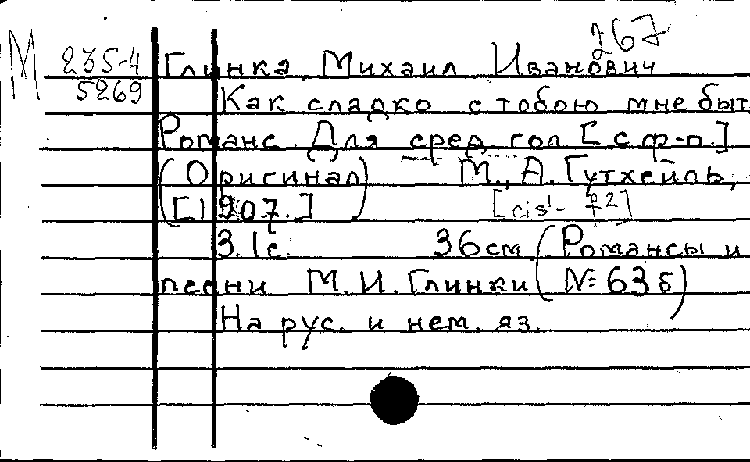 267
М 235-4
5269
Глинка, Михаил Иванович
Как сладко с тобою мне быт
Романс. Для сред. гол. [с ф-п.]
(Оригинал) М., А. Гутхейль,
[1907.] [cis¹-f²]
3. 1с. 36см. (Романсы и
песни М.И. Глинки (№ 63б)
На рус. и нем. яз.